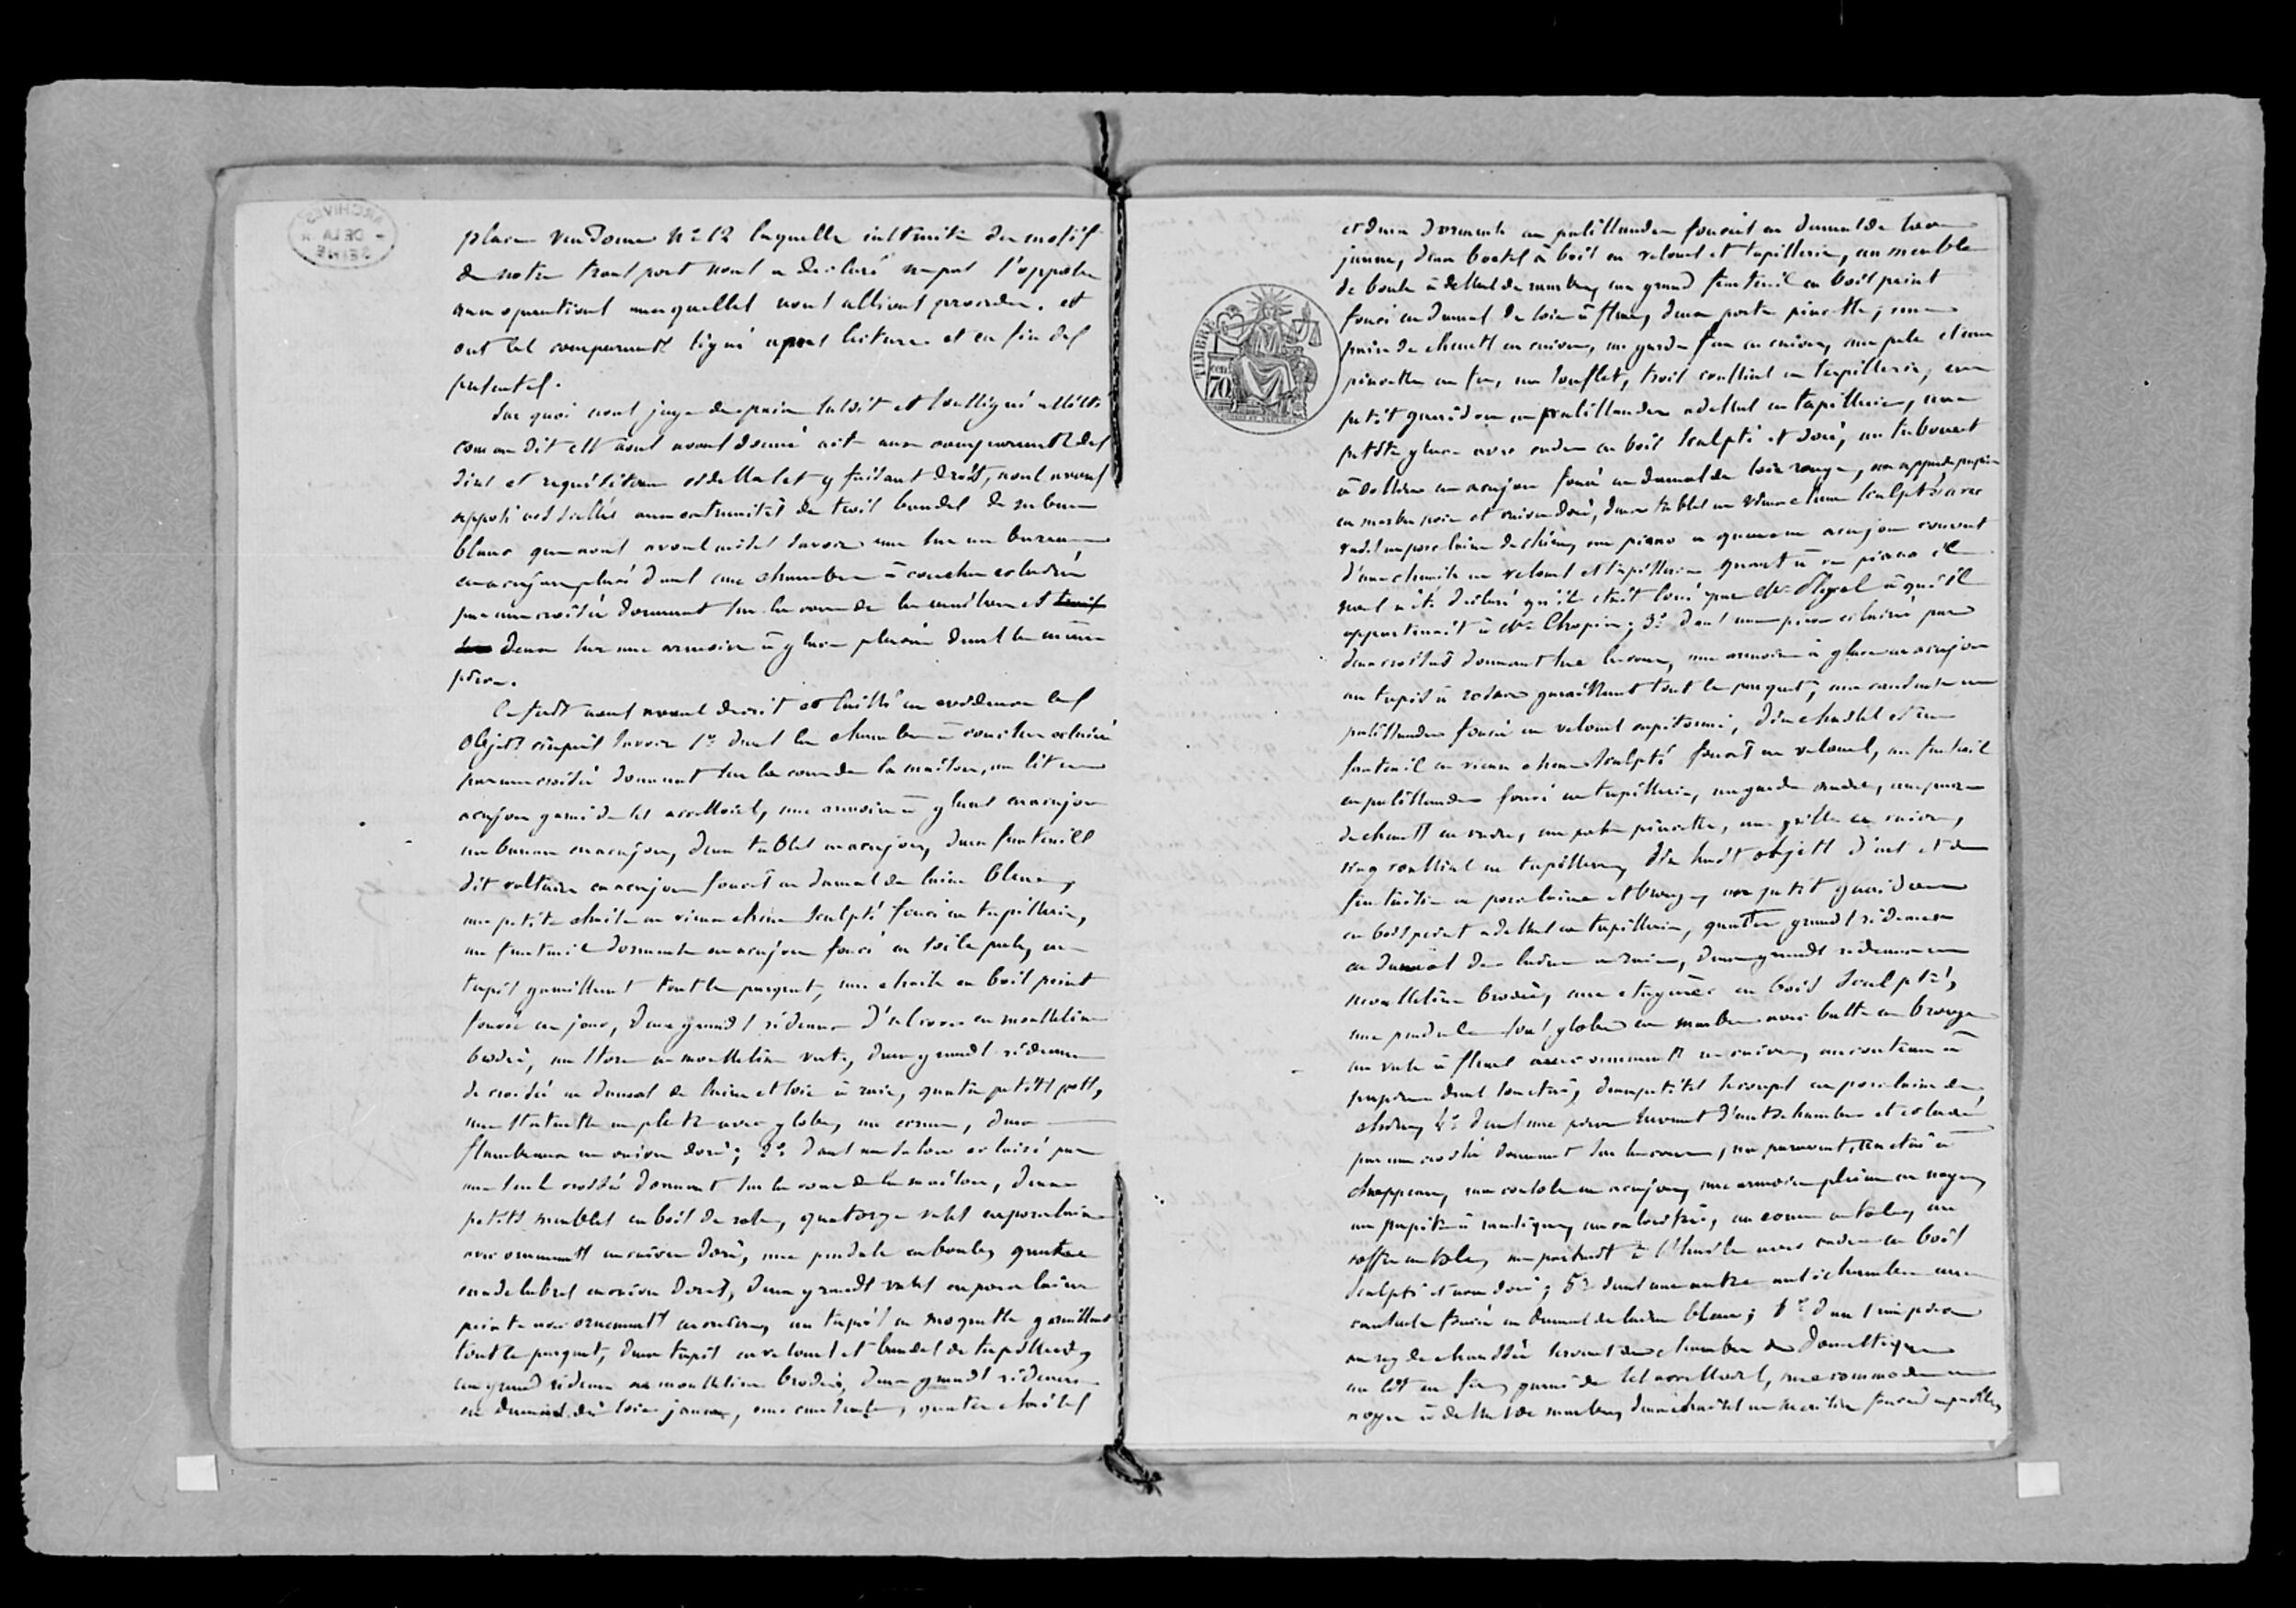 ARCHIVES
DE LA
SEINE
place Vendome N° 12 laquelle instruite du motif
de notre transport nous a déclaré ne pas s'opposer
aux opérations auxquelles nous allions procéder. et
ont les comparants signé après lecture et en fin des
présentes.
Sur quoi nous juge de paix susdit et soussigné assisté
comme dit est avons donné acte aux comparants des
dires et réquisition et y faisant droit, nous avons
apposé nos scellés aux extremités de trois bandes de ruban
blanc que nous avons mises savoir une sur un bureau
en acajou placé dans une chambre à coucher eclairée
par une croisée donnant sur la cour de la maison et
deux sur une armoire à glace placée dans la même
pièce.
Ce fait nous avons decrit et laissé en evidence les
objets cinquit savoir 1° dans la chambre à coucher eclairée
par une croisée donnant sur la cour de la maison, un lit en
acajou garni de ses accessoires, une armoire à glaces en acajou
un bureau en acajou, deux tables en acajou, deux fauteuils
dit voltaire en acajou foncés en damas de laine bleue,
une petite chaise en vieux chêne sculpté foncé en tapisserie,
un fauteuil dormeuse en acajou foncé en toile perse, un
tapis garnissant tout le parquet, une chaise en bois peint
foncée en jonc, deux grands rideaux d'alcove en mousseline
brodée, un store en mousseline verte, deux grands rideaux
de croisée en damas de laine et soie à raies, quatre petits pots,
une statuette en platre avec globe, un ecran, deux
flambeaux en cuivre doré; 2° dans un salon eclairé par
une seule croisée donnant sur la cour de la maison, deux
petits meubles en bois de rose, quatorze vases en porcelaine
avec ornements en cuivre doré, une pendule en boule, quatre
candelabres en cuivre dorés, deux grands vases en porcelaine
peinte avec ornements en cuivre, un tapis en moquette garnissant
tout le parquet, deux tapis en velours et bandes de tapisserie,
un grand rideau en mousseline brodée, deux grands rideaux
en damas de soie jaune, une causeuse, quatre chaises
TIMBRE
70
et deux dormeuses en palissandre foncées en damas de soie
jaune, deux boetes à bois en velours et tapisserie, un meuble
de boule à dessus de marbre, un grand fauteuil en bois peint
foncé en damas de soie à fleur, deux porte pincette, une
paire de chenets en cuivre, un garde feu en cuivre, une pele et une
pincette en fer, un soufflet, trois coussins en tapisserie, un
petit gueridon en palissandre a dessus en tapisserie, une
petite glace avec cadre en bois sculpté et doré, un tabouret
à dossier en acajou foncé en damas de soie rouge, un appuie papier
en marbre noir et cuivre doré, deux tables en vieux chene sculptées avec
vases en porcelaine de chine, un piano a queue en acajou couvert
d'une chemise en velours et tapisserie quant à ce piano il
nous a été déclaré qu'il était loué par M. Pleyel à qu'il
appartenait à M. Chopin; 3° dans une pièce eclairée par
deux croisées donnant sur la cour, une armoire à glace en acajou
un tapis à rosaces garnissant tout le parquet, une causeuse en
palissandre foncée en velours capitonné, dix chaises et un
fauteuil en vieux chene sculpté foncés en velours, un fauteuil
en palissandre foncé en tapisserie, un garde cendre, une paire
de chenets en cuivre, une porte pincette, une grille en cuivre,
cinq coussins en tapisserie, dix huit objets d'art et de
fantaisie en porcelaine et bronze, un petit gueridon
en bois peint a dessus en tapisserie, quatre grands rideaux
en damas de laine a raies, deux grands rideaux en
mousseline brodée, une etagère en bois sculpté,
une pendule sous globe en marbre avec buste en bronze
un vase à fleurs avec ornements en cuivre, un couteau à
papier dans son etui, deux petites soucoupes en porcelaine de
chine, 4° dans une pièce servant d'antichambre et eclairée
par une croisée donnant sur la cour, un paravent, un etui à
chapeau, une console en acajou, une armoire pleine en noyer,
un pupitre à musique, un calorifère, un ecran en tole, un
coffre en tole, un portrait à l'huile avec cadre en bois
sculpté et non doré; 5° dans une autre antichambre une
causeuse foncée en damas de laine bleue; 6° dans une pièce
au rez de chaussée servant de chambre de domestique
un lit en fer, garni de ses accessoires, une commode en
noyer à dessus de marbre, deux chaises en merisier foncées en paille,